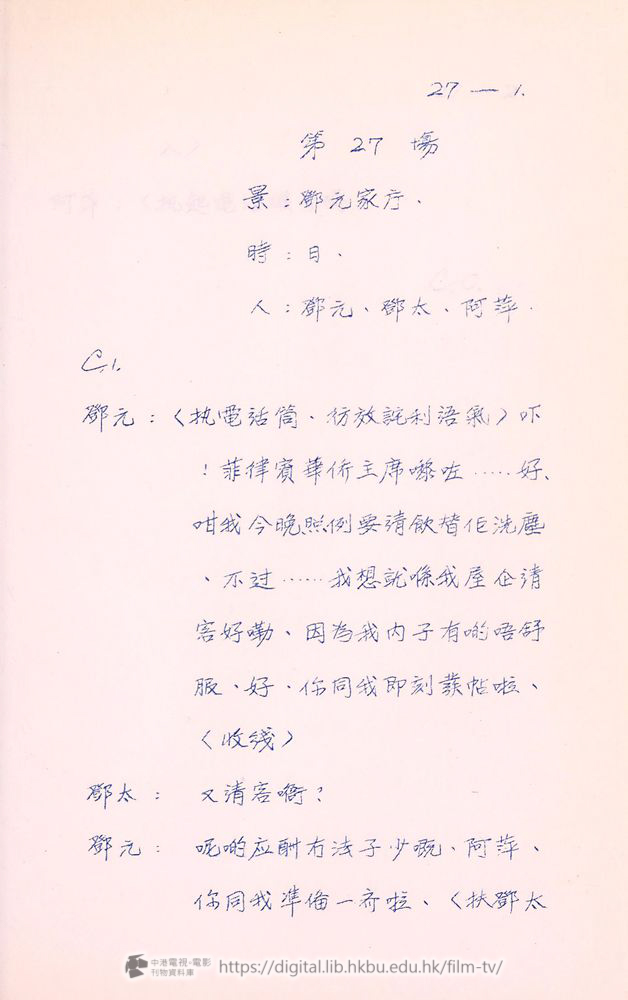 27 — 1.
第 27 場
景：鄧元家庁．
時：日．
人：鄧元、鄧太、阿萍．
C.1.
鄧元：〈执電話筒、彷效詫利语氣〉吓
！菲律賓華侨主席嚟咗……好、
咁我今晚照例要请飲替佢洗塵
、不过……我想就喺我屋企请
客好嘞、因為我内子有啲唔舒
服、好．你同我即刻發帖啦、
〈收线〉
鄧太： 又请客嗬？
鄧元： 呢啲应酬冇法子少嘅、阿萍、
你同我準備一齐啦、〈扶鄧太
中港電視·電影
刊物資料庫
https://digital.lib.hkbu.edu.hk/film-tv/